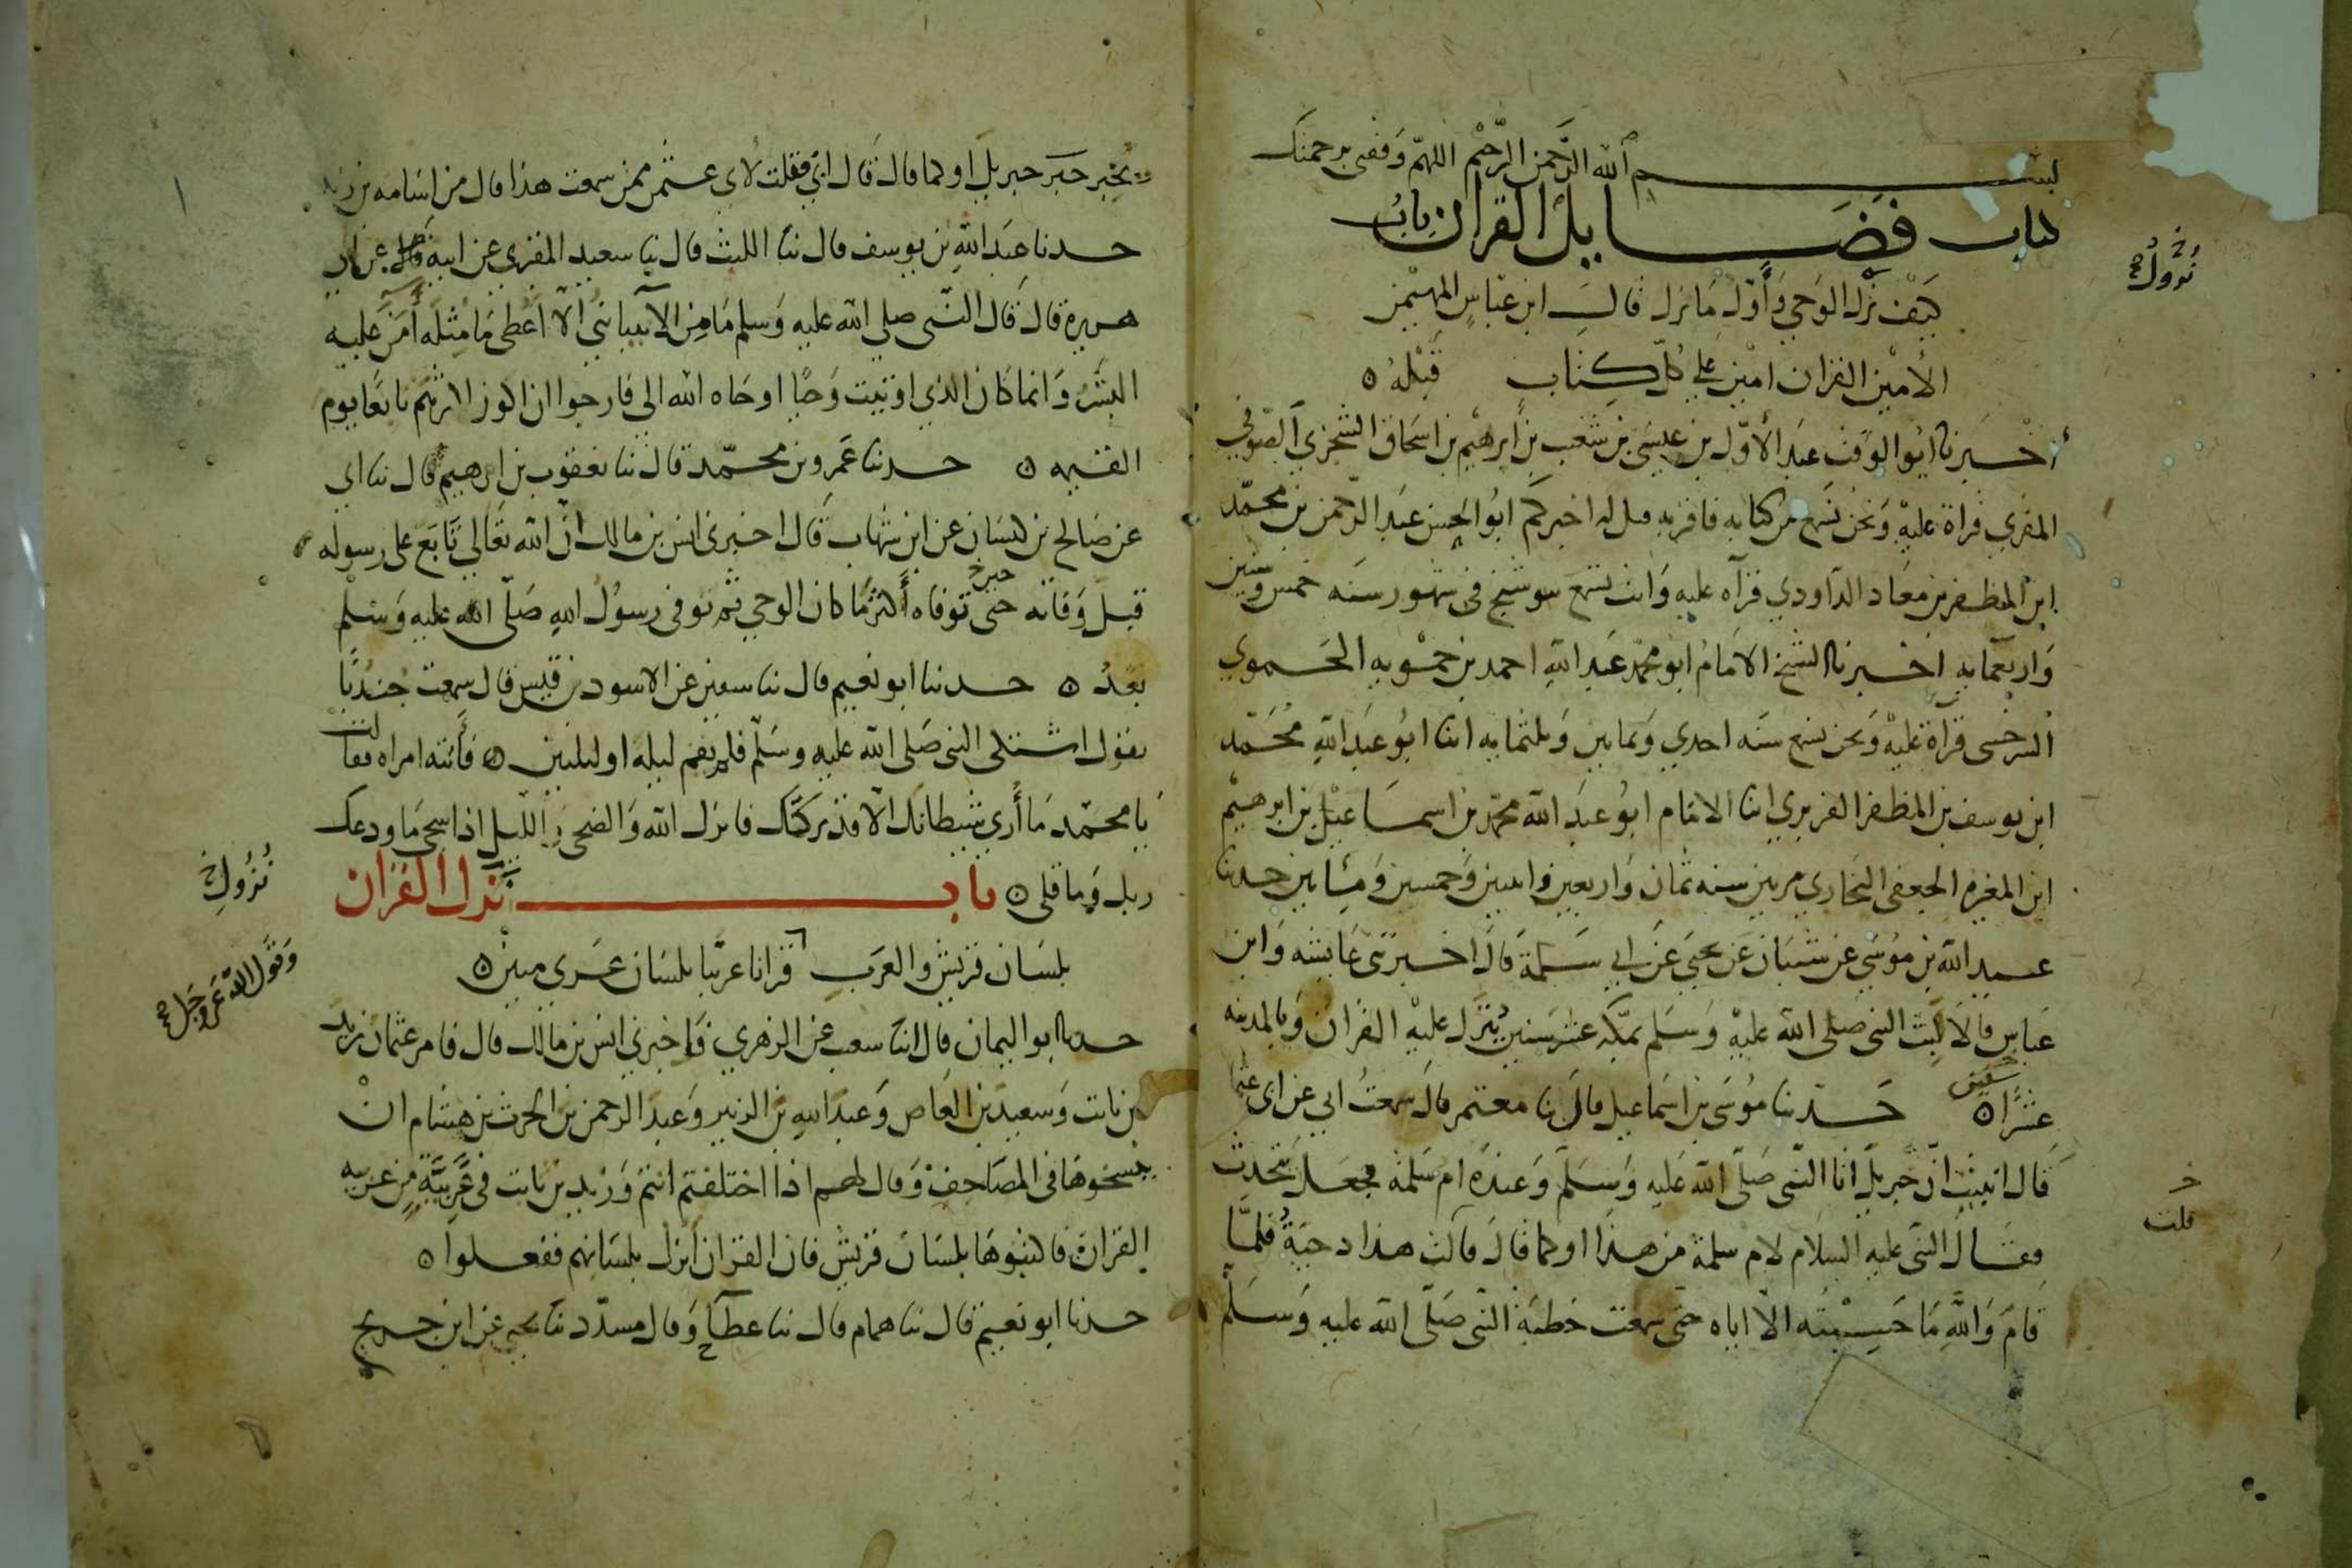 بسم الله الرحمن الرحيم اللهم وفقني برحمتك
كتاب فضايل القران باب
نزول صح
كَيْفَ نزل الوَحي وَأَوّل مَا نزل قالَ ابن عبّاسٍ المهيْمن
الأمين القران امين على كلّ كِتاب قبْله ه
أخْبَرنا ابُو الوَقت عبد الأوّل بن عيسَى بن شعَيب بن ابرهيْم بن اسحاق السجزي الصّوفي
المقري قراة عليْهِ وَنحنُ نسْمع من كتابه فاقر به قيل له اخبركم ابُو الحسن عبد الرّحمن بن محمّد
ابن المظفر بن معَاد الدّاودي قرآه عليه وَانت تسمع ببوشنج في شهور سنَه خمس وستين
وَاربعمايه اخبَرنا الشيخ الامَامُ ابُو محمّد عَبد اللهِ احمد بن حمّويه الحَموي
السرخسى قرآة عليْهِ وَنحن نسمع سنَه احدي وَثمانين وَثلثمايه انبا ابُو عَبد اللهِ مُحَمّد
ابن يوسف بن المظفر الفربري انبا الامَام ابُو عَبد الله محمّد بن اسمَاعيْل بن ابرهيْم
ابن المغيره الجعفى البخَاري مرتين سنه ثمان وَاربعين واثنين وَخمسين وَمِئتَاين حدثنا
عبيد الله بن مُوسَى عن شيبَان عَن يحيَى عَن ابي سَلمة قالَ اخبرتنى عَايشه وَابن
عَباسٍ قالاَ لَبِث النبى صَلى الله عليْهِ وَسَلم بمكّه عشر سنين يُنَزل عليْهِ القران وَبالمدينه
سنين
عشرًا ه حَدثنا مُوسَى بن اسمَاعيل قال نا معتمر قالَ سمعتُ ابي عن ابى عثمان
قَالَ انبيت انّ جبريل اتا النّبى صَلّى الله عَليه وَسَلّم وَعنده ام سَلمة فجعَل يتحَدث
فقَال النبى عليه السلام لام سلمة من هذا او كما قالَ قالت هذا دحيَةُ فلمَّا
خ قلت
قامَ وَاللهِ مَا حَسِبْتُه الّا اياه حتى سمعت خطبَة النّبى صَلّى الله عليه وَسَلّم
يُخبر خبَر جبريل او كما قال قال ابي فقلت لأبي عثمن ممن سمعت هذا قال من اسَامه بن زيد
حدثنا عَبد اللهِ بن يوسف قال ثنا الليث قال ثنا سعيد المقبري عن ابيه عن ابي
هريرة قالَ قال النّبى صلى الله عليه وَسلم مَا مِن الأنبيا نبيّ الّا اُعْطى مَا مثلَه أمَن عَليه
البشر وَانما كان الذي اوتيت وَحيًا اوحَاه الله الي فارجوا ان اكون اكثرهم تابعًا يوم
القيمه ه حدثنا عَمرو بن محمّد قالَ ثنا يعقوب بن ابرهيم قال ثنا ابي
عن صَالح بن كيسَان عن ابن شهاب قال اخبرني انس بن مالك انّ الله تعَالي تَابَع على رسوله
قبل وَفاته حتى توفاه أكثر مَا كان الوحي ثم توفى رسولُ اللهِ صَلّى الله عليه وَسَلّم
بَعدُ ه حدثنا ابو نعيم قال ثنا سفين عن الاسود بن قيس قال سمعت جندُبًا
يقول اشتكى النبى صَلى الله عليه وسَلّم فلم يقم ليله او ليلتين ه فأتته امراه فقالت
يَا محمّد مَا أُري شيطانَك الّا قد تركَكَ فانزل الله وَالضحى وَالليل اذا سجى مَا ودعك
ربك وَما قلى ه باب نزل القران
نُزُول خ
وَقَوْل الله عَز وَجَل صح
بلسَان قريش وَالعرَب قرانا عربيّا بلسَان عَربي مبين ه
حدثنا ابو اليمان قال انبا شعيب عن الزهري وَاخبرني انس بن مالك قال فامر عثمان زيد
بن ثابت وَسعيد بن العَاص وَعبد اللهِ بن الزبير وَعبد الرحمن بن الحرث بن هشام انْ
ينسخوهَا في المصَاحِف وَقال لهم اذا اختلفتم انتم وَزيد بن ثابت في عَرَبيَّةٍ مِن عربيه
القران فاكتبوهَا بلسَان قريش فان القران اُنزل بلسَانهم ففعلوا ه
حدثنا ابو نعيم قال ثنا همام قال ثنا عطآ ح وَقال مسدّد ثنا يحيى عن ابن جريج